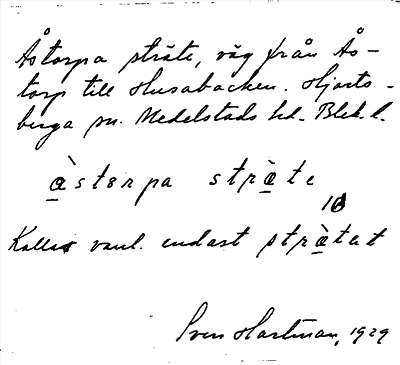 Åstorpa sträte, väg från Ås-
torp till Husabacken. Hjorts-
berga sn. Medelstads hd. Blek. l.
ὰ̲stɘrpa stræ̲̀te
10
Kallas vanl. endast stræ̲̀tət
Sven Hartman, 1929